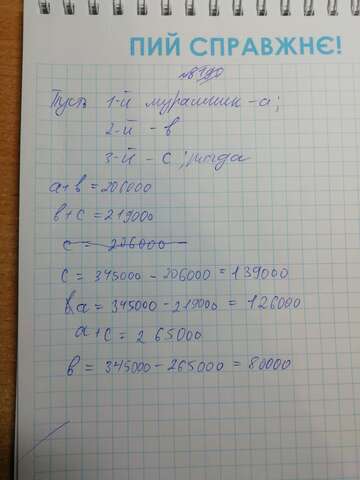 ПИЙ СПРАВЖНЄ!
№8190
Пусть 1-й мурашник - а;
2-й - в
3-й - с; тогда
а+в = 206000
в+с = 219000
с = 206000
с = 345000 - 206000 = 139000
а = 345000 - 219000 = 126000
а+с = 265000
в = 345000 - 265000 = 80000